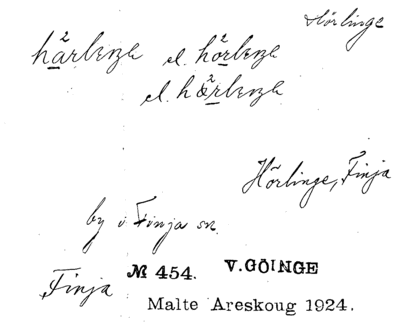 Hörlinge
hårlenge el. hörlenge
el. hærlenge
Hörlinge, Finja
by i Finja sn.
№ 454. V. GÖINGE
Finja
Malte Areskoug 1924.